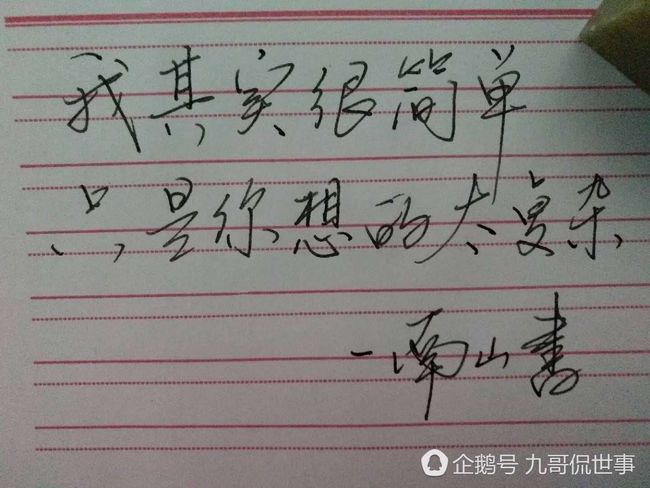 我其实很简单
只是你想的太复杂
一南山書
企鹅号 九哥侃世事